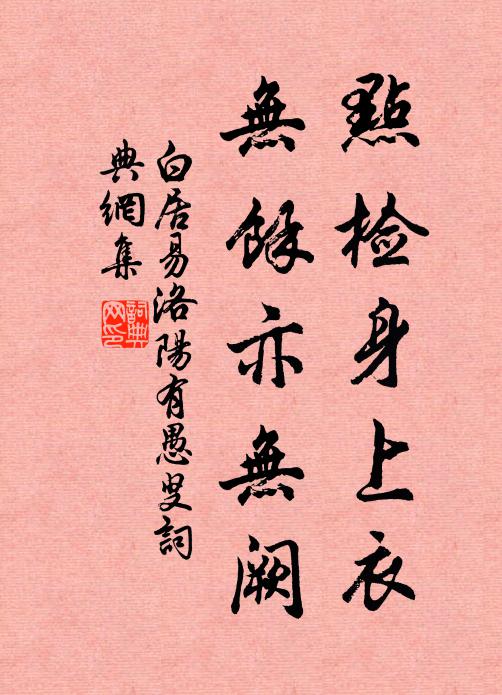 點檢身上衣
無餘亦無闕
白居易洛陽有愚叟詞
典網集
詞典
网印